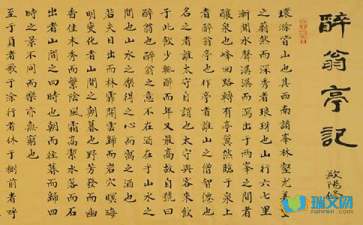 醉翁亭記
歐陽修
環滁皆山也其西南諸峯林壑尤美望
之蔚然而深秀者琅琊也山行六七里
漸聞水聲潺潺而瀉出于兩峯之間者
釀泉也峰回路轉有亭翼然臨于泉上
者醉翁亭也作亭者誰山之僧智僊也
名之者誰太守自謂也太守與客來飲
于此飲少輒醉而年又最高故自號曰
醉翁也醉翁之意不在酒在乎山水之
間也山水之樂得之心而寓之酒也
若夫日出而林霏開雲歸而岩穴暝晦
明變化者山間之朝暮也野芳發而幽
香佳木秀而繁陰風霜高潔水落而石
出者山間之四時也朝而往暮而歸四
時之景不同而樂亦無窮也
至于負者歌于塗行者休于樹前者呼
瑞文网